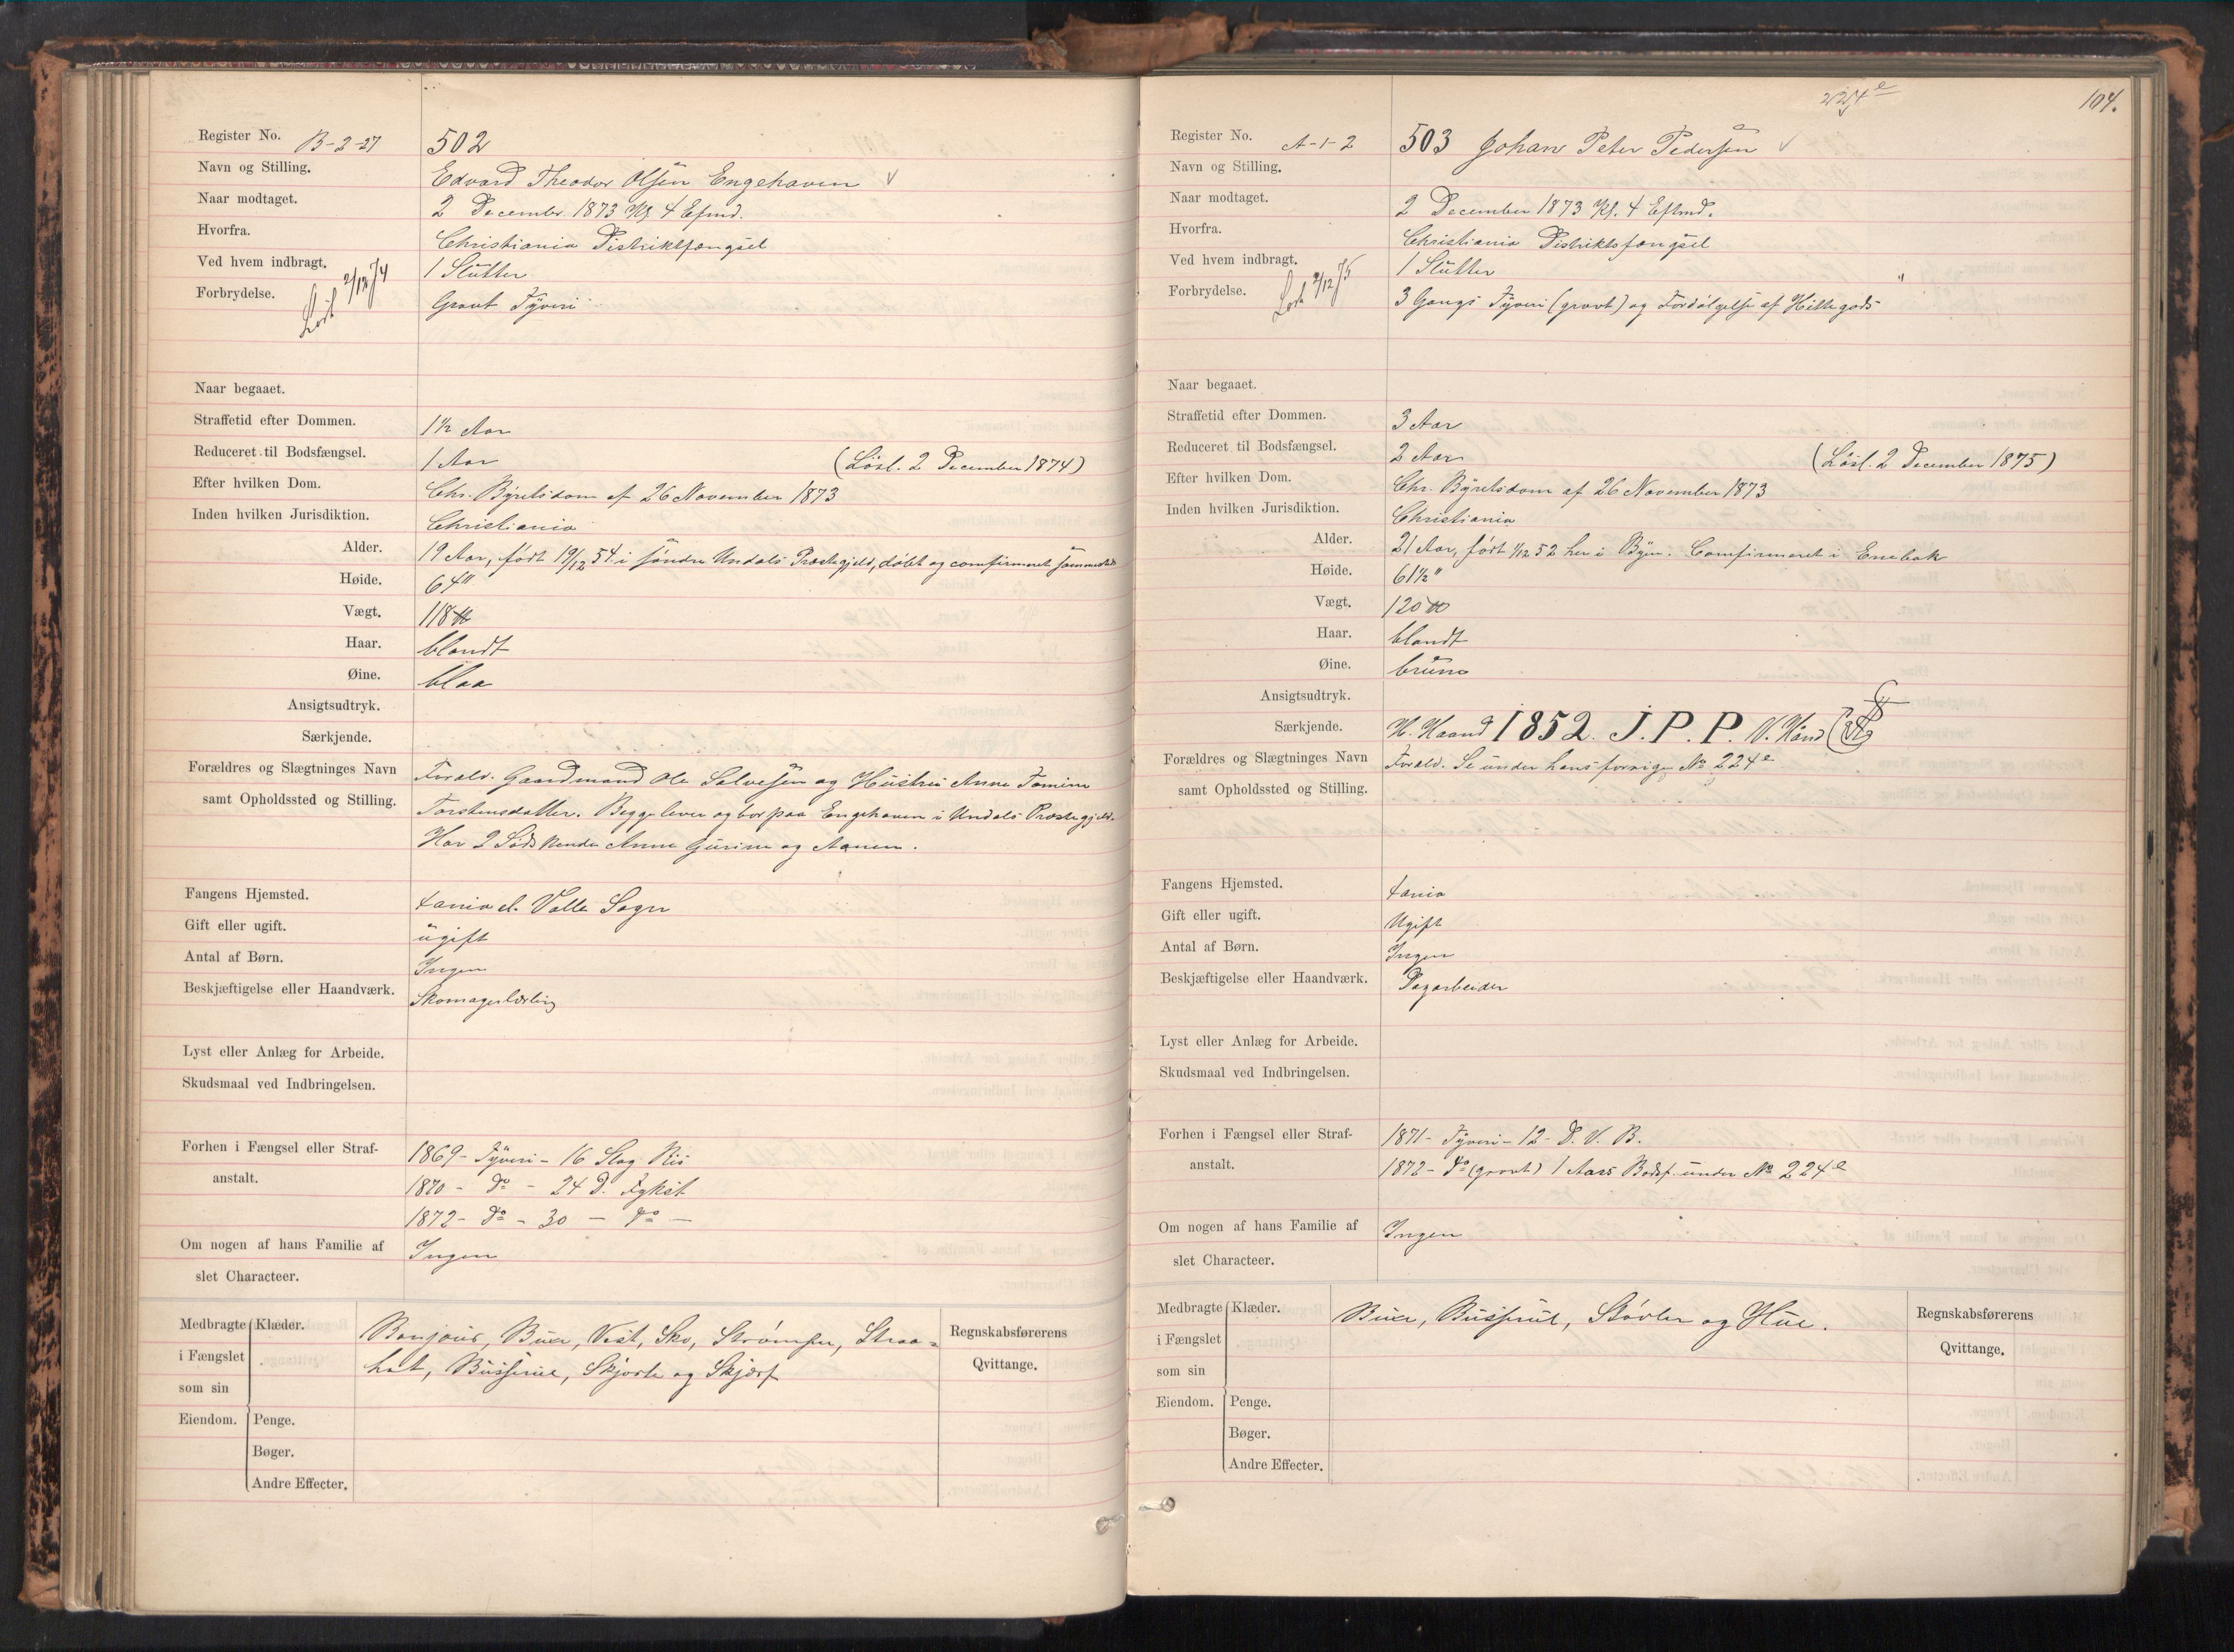 Register No. B-2-27 502
Navn og Stilling. Edvard Theodor Olsen Engehaven
Naar modtaget. 2 Decembr. 1873 Kl. 4 Efmd.
Hvorfra. Christiania Distriktsfængsel
Ved hvem indbragt. 1 Slutter
Forbrydelse. Løsl 2/12 74 Grovt Tyveri
Naar begaaet.
Straffetid efter Dommen. 1 1/2 Aar
Reduceret til Bodsfængsel. 1 Aar (Løsl. 2 December 1874)
Efter hvilken Dom. Chr. Byretsdom af 26 November 1873
Inden hvilken Jurisdiktion. Christiania
Alder. 19 Aar, født 19/12 54 i søndre Undals Præstegjeld, døbt og comfirmeret sammesteds
Høide. 64"
Vægt. 118 ℔
Haar. blondt
Øine. blaa
Ansigtsudtryk.
Særkjende.
Forældres og Slægtninges Navn Foræld. Gaardmand Ole Salvesen og Hustru Anne Tomine
samt Opholdssted og Stilling. Torstensdatter. Begge lever og bor paa Engehaven i Undals Præstegjeld.
Har 2 Sødskende Anne Gurine og Aanen.
Fangens Hjemsted. Xania el. Valle Sogn
Gift eller ugift. ugift
Antal af Børn. Ingen
Beskjæftigelse eller Haandværk. Skomagerlærling
Lyst eller Anlæg for Arbeide.
Skudsmaal ved Indbringelsen.
Forhen i Fængsel eller Straf- 1869 - Tyveri - 16 Slag Ris
anstalt. 1870 - Do - 24 D. Fgkst
1872 - Do - 30 - Do -
Om nogen af hans Familie af Ingen
slet Characteer.
Medbragte Klæder. Bonjour, Buxe, Vest, Sko, Strømper, Straa-
i Fængslet hat, Busserul, Skjorte og Skjærf
som sin
Eiendom. Penge.
Bøger.
Andre Effecter.
Regnskabsførerens
Qvittange.
224e 104.
Register No. A-1-2 503 Johan Peter Pedersen
Navn og Stilling.
Naar modtaget. 2 December 1873 Kl. 4 Eftmd.
Hvorfra. Christiania Distriktsfængsel
Ved hvem indbragt. 1 Slutter
Forbrydelse. Løsl 2/12 75 3 Gangs Tyveri (grovt) og Fordølgelse af Hittegods
Naar begaaet.
Straffetid efter Dommen. 3 Aar
Reduceret til Bodsfængsel. 2 Aar (Løsl. 2 December 1875)
Efter hvilken Dom. Chr. Byretsdom af 26 November 1873
Inden hvilken Jurisdiktion. Christiania
Alder. 21 Aar, født 1/12 52 her i Byen. Comfirmeret i Enebak
Høide. 61 1/2"
Vægt. 120 ℔
Haar. blondt
Øine. brune
Ansigtsudtryk.
Særkjende. H. Haand 1852. J. P. P. V. Hånd
Forældres og Slægtninges Navn Foræld. Se under hans forrige No 224e
samt Opholdssted og Stilling.
Fangens Hjemsted. Xania
Gift eller ugift. Ugift
Antal af Børn. Ingen
Beskjæftigelse eller Haandværk. Dagarbeider
Lyst eller Anlæg for Arbeide.
Skudsmaal ved Indbringelsen.
Forhen i Fængsel eller Straf- 1871 - Tyveri - 12 - D. V. B.
anstalt. 1872 - Do (grovt) 1 Aars Bodsf. under No 224e
Om nogen af hans Familie af Ingen
slet Characteer.
Medbragte Klæder. Buxe, Busserul, Støvler og Hue.
i Fængslet
som sin
Eiendom. Penge.
Bøger.
Andre Effecter.
Regnskabsførerens
Qvittange.